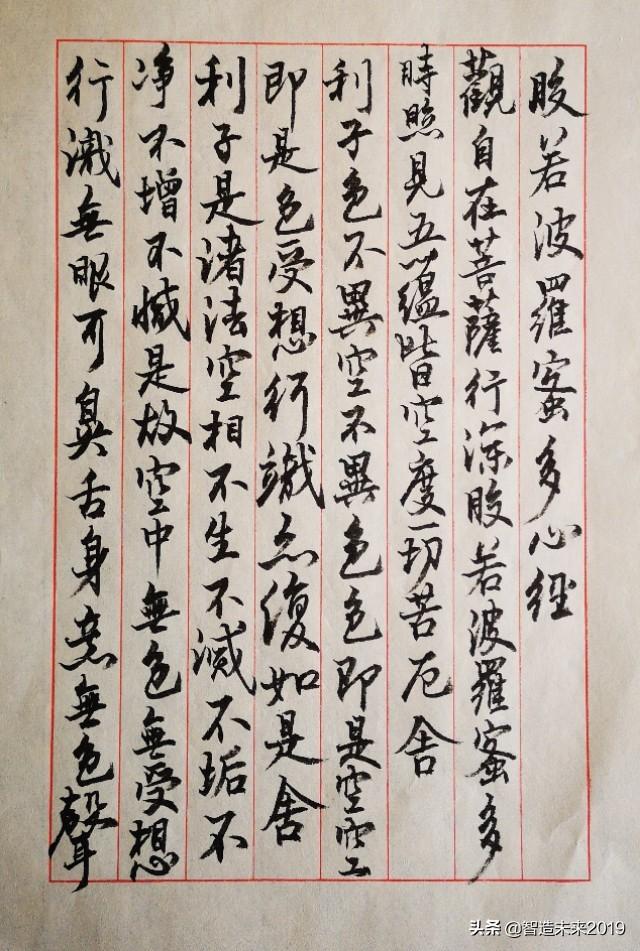 般若波羅蜜多心經
觀自在菩薩行深般若波羅蜜多
時照見五蘊皆空度一切苦厄舍
利子色不異空不異色色即是空空
即是色受想行識亦復如是舍
利子是諸法空相不生不滅不垢不
净不增不減是故空中無色無受想
行識無眼耳鼻舌身意無色聲
头条 @智造未来2019